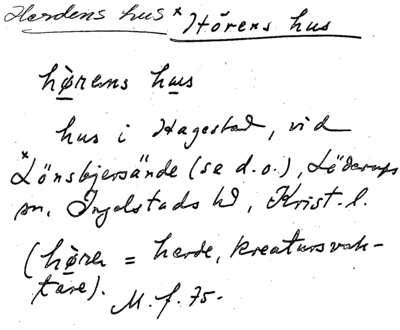 Herdens hus × Hörens hus
hørens hus
hus i Hagestad, vid
×Lönsbjersände (se d.o.), Löderups
sn, Ingelstads hd, Krist. l.
(høren = herde, kreatursvak-
tare). M.f. 75.